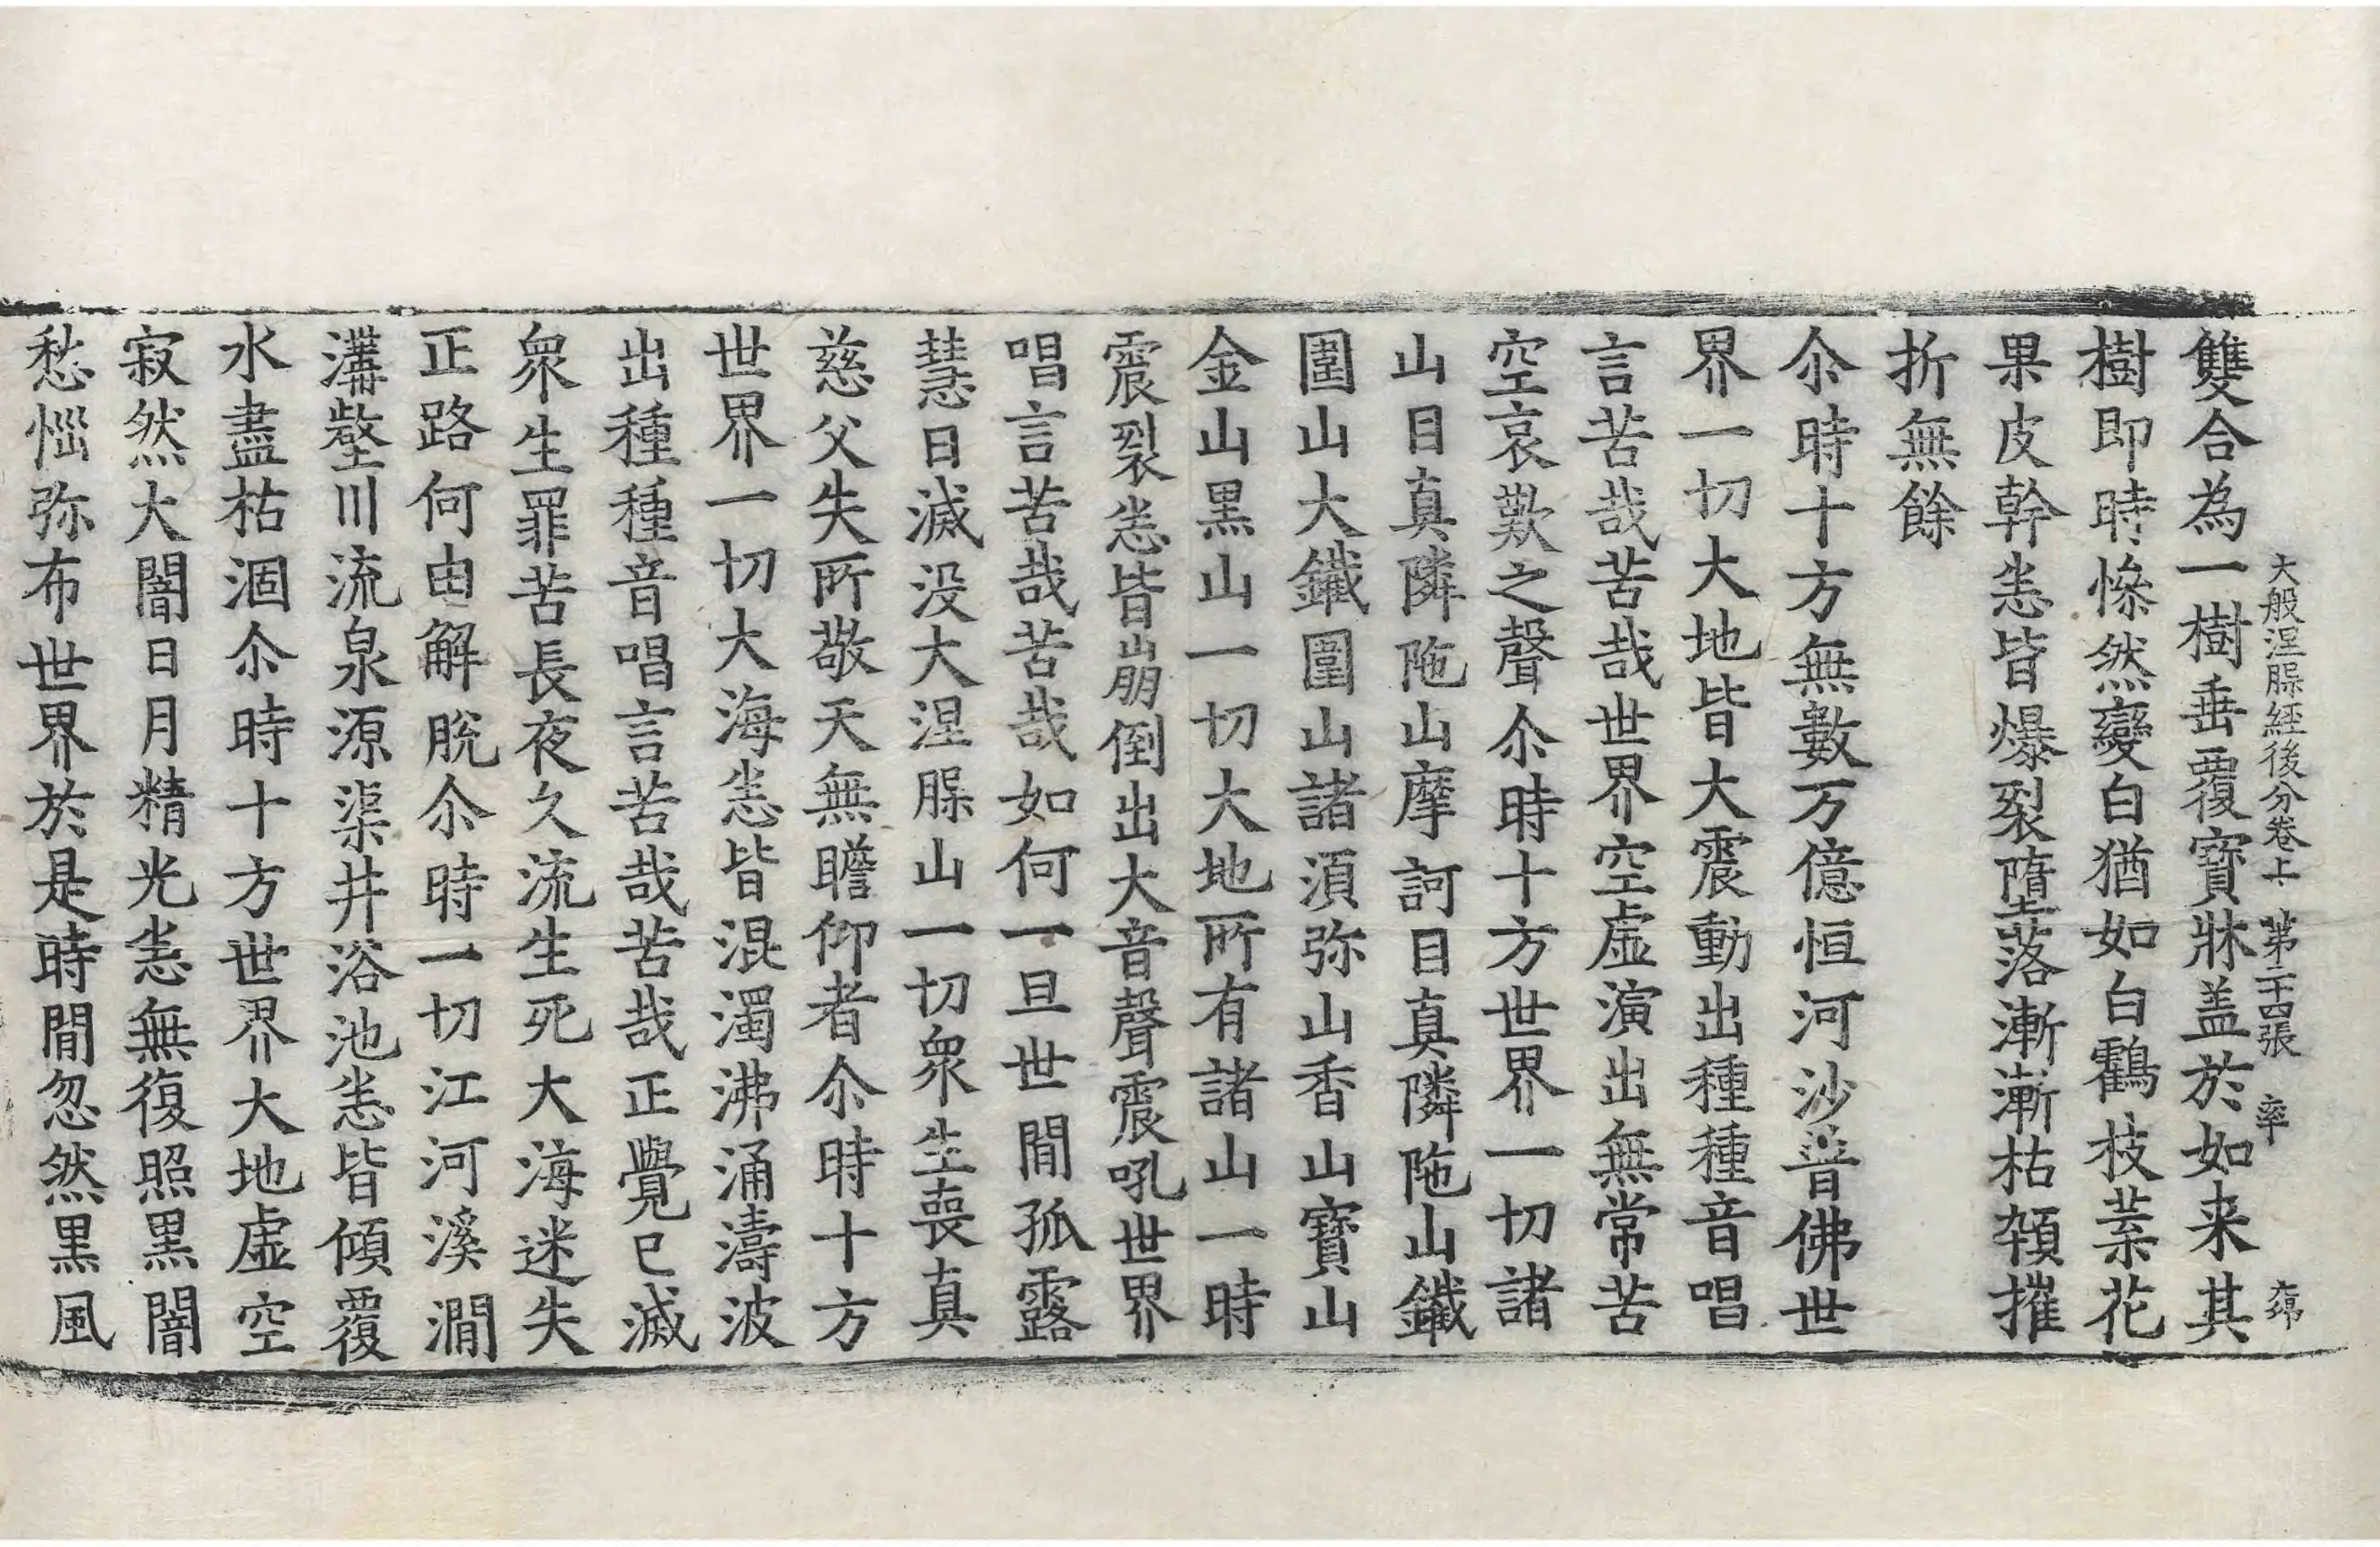 大般涅槃経後分卷上 第二十四張 率
雙合為一樹垂覆寶牀盖於如来其
樹即時慘然變白猶如白鶴枝葉花
果皮幹悉皆爆裂墮落漸漸枯顇摧
折無餘
尒時十方無數万億恒河沙普佛世
界一切大地皆大震動出種種音唱
言苦哉苦哉世界空虛演出無常苦
空哀歎之聲尒時十方世界一切諸
山目真隣陁山摩訶目真隣陁山鐵
圍山大鐵圍山諸湏弥山香山寶山
金山黒山一切大地所有諸山一時
震裂悉皆崩倒出大音聲震吼世界
唱言苦哉苦哉如何一旦世閒孤露
慧日滅没大涅槃山一切衆生喪真
慈父失所敬天無瞻仰者尒時十方
世界一切大海悉皆混濁沸涌濤波
出種種音唱言苦哉苦哉正覺已滅
衆生罪苦長夜久流生死大海迷失
正路何由解脫尒時一切江河溪澗
溝壑川流泉源渠井浴池悉皆傾覆
水盡枯涸尒時十方世界大地虛空
寂然大闇日月精光悉無復照黒闇
愁惱弥布世界於是時閒忽然黒風